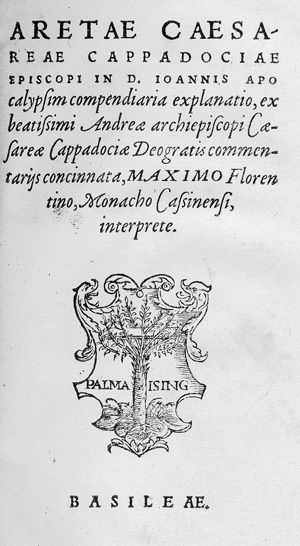 ARETAE CAESA-
REAE CAPPADOCIAE
EPISCOPI IN D. IOANNIS APO
calypsim compendiaria explanatio, ex
beatissimi Andreæ archiepiscopi Cæ-
sareæ Cappadociæ Deogratis commen-
tarijs concinnata, MAXIMO Floren
tino, Monacho Cassinensi,
interprete.
PALMA ISING
BASILEAE.